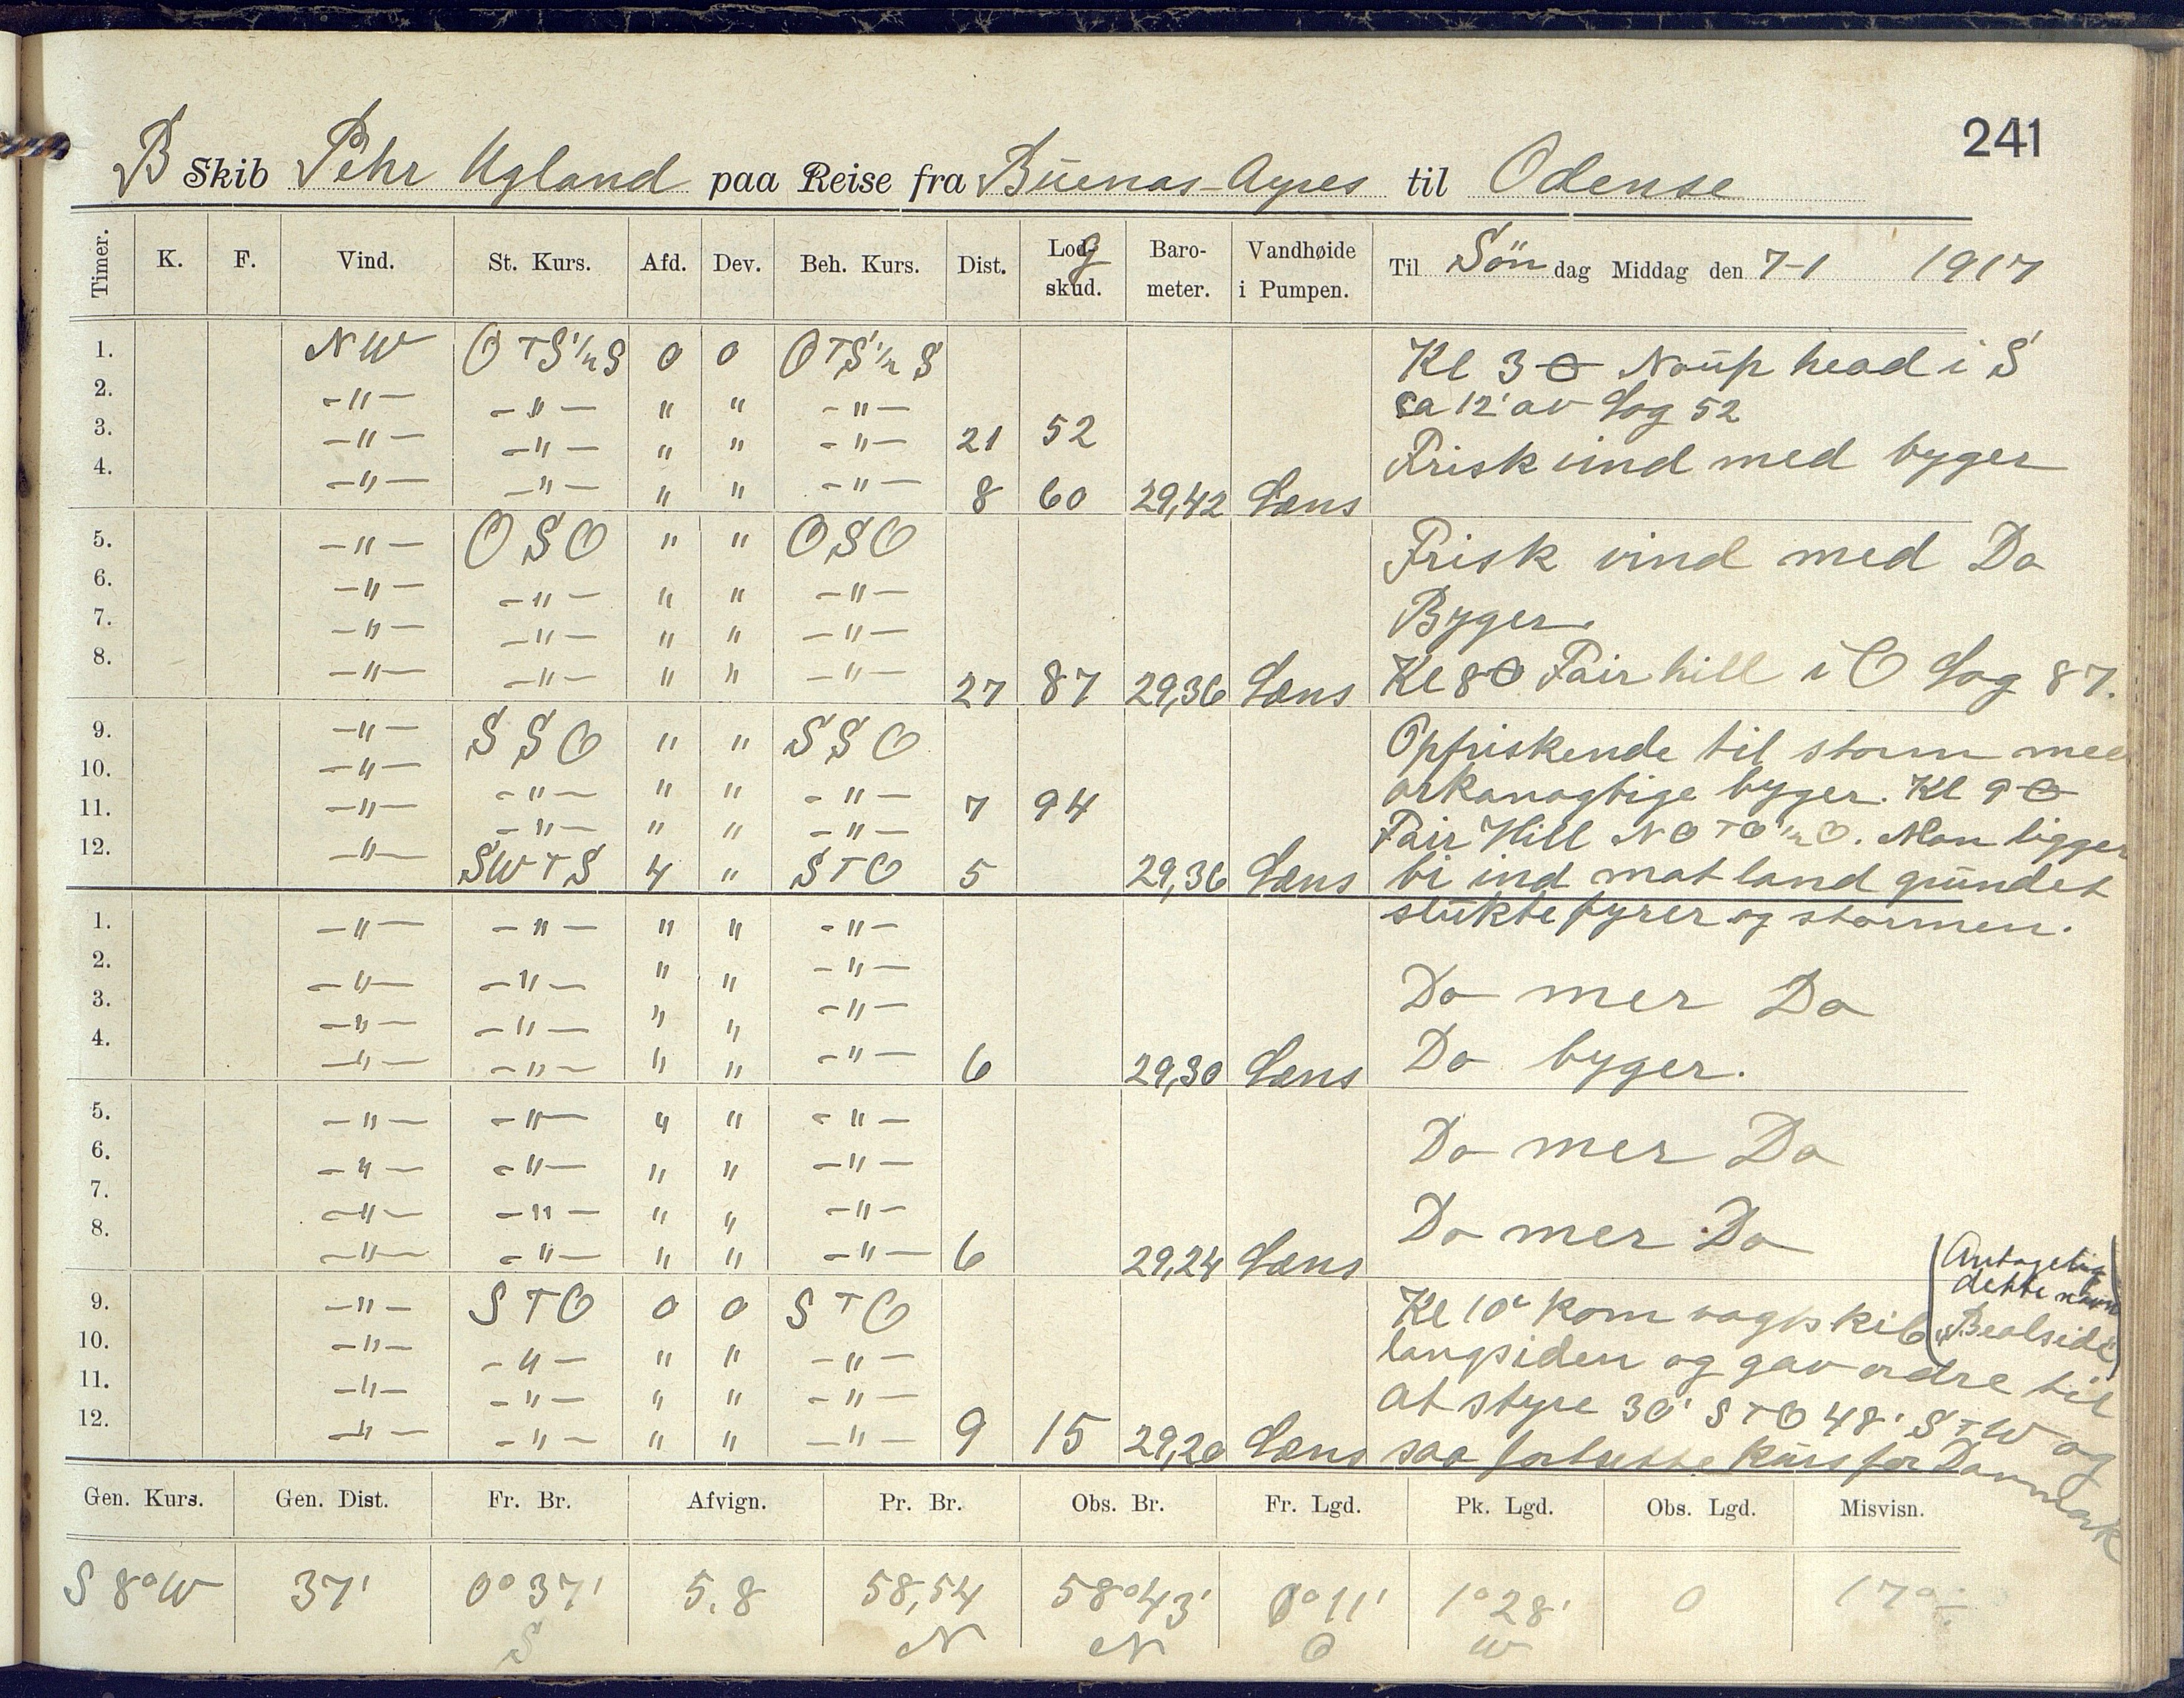 241
B Skib Pehr Ugland paa Reise fra Buenas-Ayres til Odense
Timer. K. F. Vind. St. Kurs. Afd. Dev. Beh. Kurs. Dist. Log skud. Baro-meter. Vandhøide i Pumpen. Til Søndag Middag den 7-1 1917
1. NW OTS½S 0 0 OTS½S Kl 3 0 Noup head i S
2. -"- -"- " " -"- ca 12' av Log 52
3. -"- -"- " " -"- 21 52 Frisk vind med byger
4. -"- -"- " " -"- 8 60 29,42 Læns
5. -"- OSO " " OSO Frisk vind med Do
6. -"- -"- " " -"-
7. -"- -"- " " -"- Byger.
8. -"- -"- " " -"- 27 87 29,36 Læns Kl 8 0 Fair hill i O Log 87.
9. -"- SSO " " SSO Opfriskende til storm med
10. -"- -"- " " -"- 7 94 orkanagtige byger. Kl 9 0
11. -"- -"- " " -"- Fair Hill NOTO½O. Man ligger
12. -"- SWTS 4 " STO 5 29,36 Læns bi ind mot land grundet
1. -"- -"- " " -"- slukte fyrer og stormen.
2. -"- -"- " " -"- Do mer Do
3. -"- -"- " " -"-
4. -"- -"- " " -"- 6 29,30 Læns Do byger.
5. -"- -"- " " -"- Do mer Do
6. -"- -"- " " -"-
7. -"- -"- " " -"- Do mer Do
8. -"- -"- " " -"- 6 29,24 Læns
(Antagelig dette navn "Bealside")
9. -"- STO 0 0 STO Kl 10 kom vagtskib
10. -"- -"- " " -"- langsiden og gav ordre til
11. -"- -"- " " -"- at styre 30' STO 48' STW og
12. -"- -"- " " -"- 9 15 29,20 Læns saa fortsette kurs for Danmark
Gen. Kurs. Gen. Dist. Fr. Br. Afvign. Pr. Br. Obs. Br. Fr. Lgd. Pk. Lgd. Obs. Lgd. Misvisn.
S 8°W 37' 0°37' 5.8 58,54 58°43' 0°11' 1°28' 0 17°
S N N O W